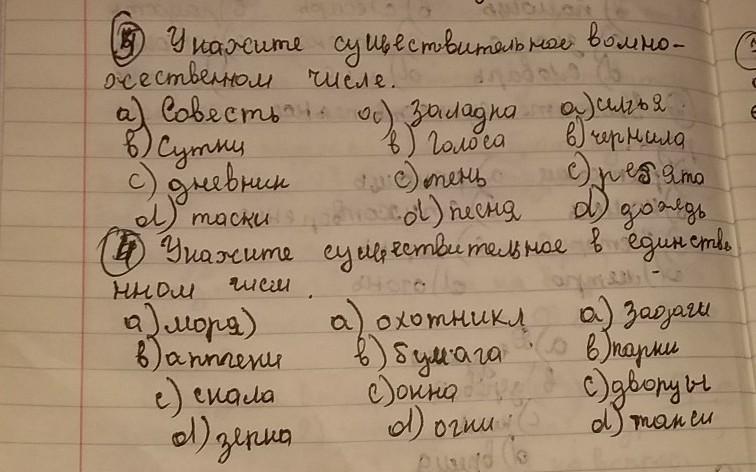 5 Укажите существительное во мно-
жественном числе.
a) Совесть a) Загадка a)
b) Сутки b) Голоса b) чернила
c) дневник c) тень c) ребята
d) d) песня d) дождь
4 Укажите существительное в единстве
нном числ.
a) моря) a) охотники a) задачи
b) аптеки b) бумага b) парки
c) скала c) окна c) дворцы
d) зерна d) огни d) такси